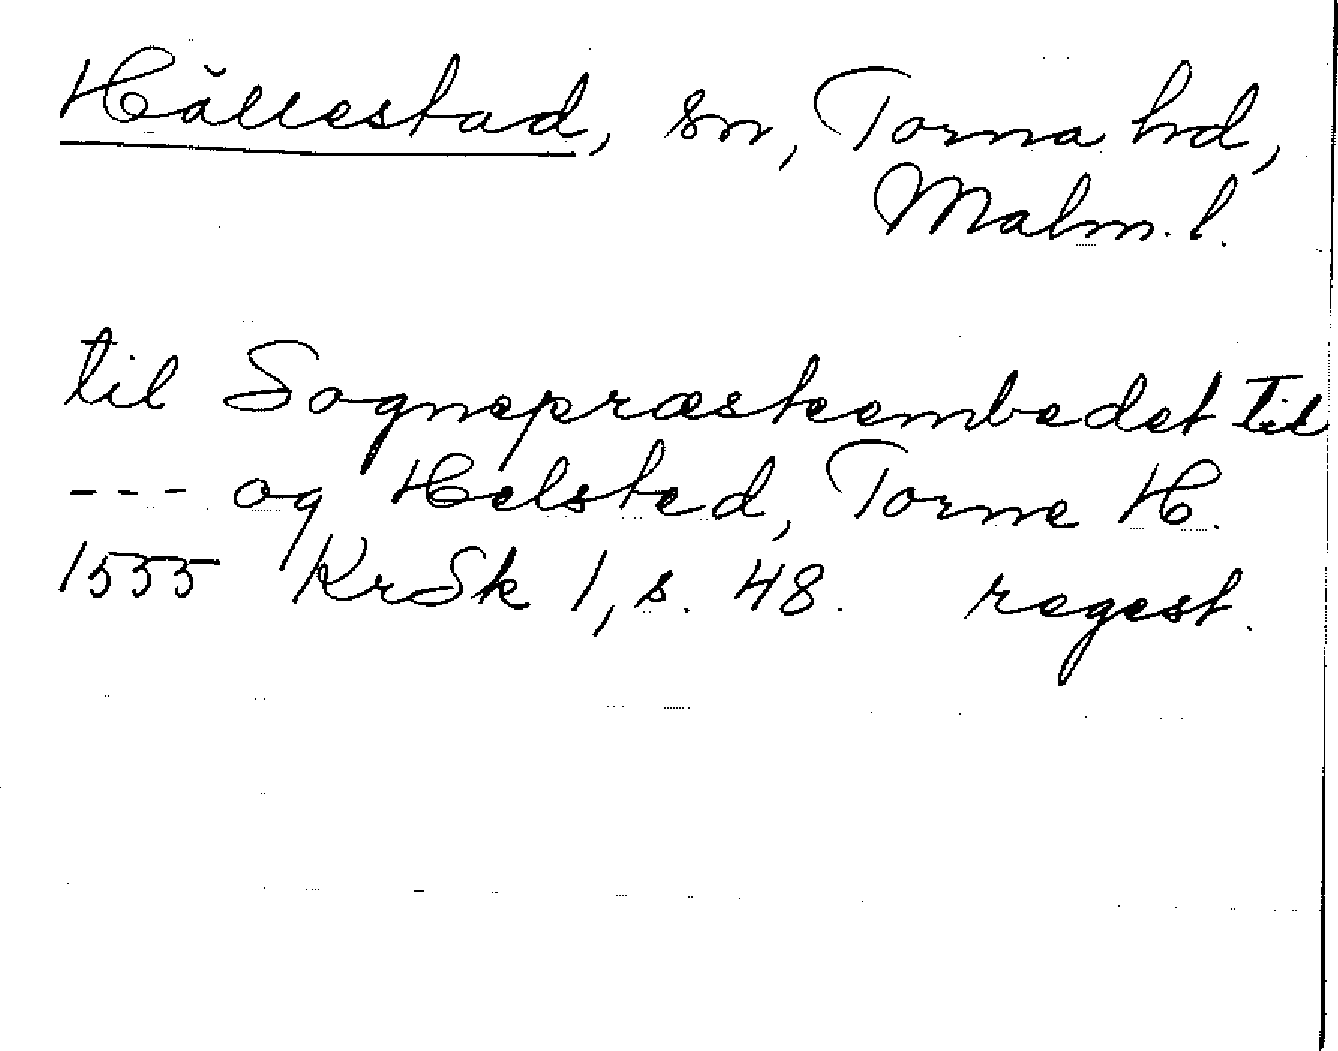 Hällestad, sn, Torna hd,
Malm. l.
til Sognepræsteembedet til
--- og Helsted, Torne H.
1555 KrSk 1, s. 48. regest.